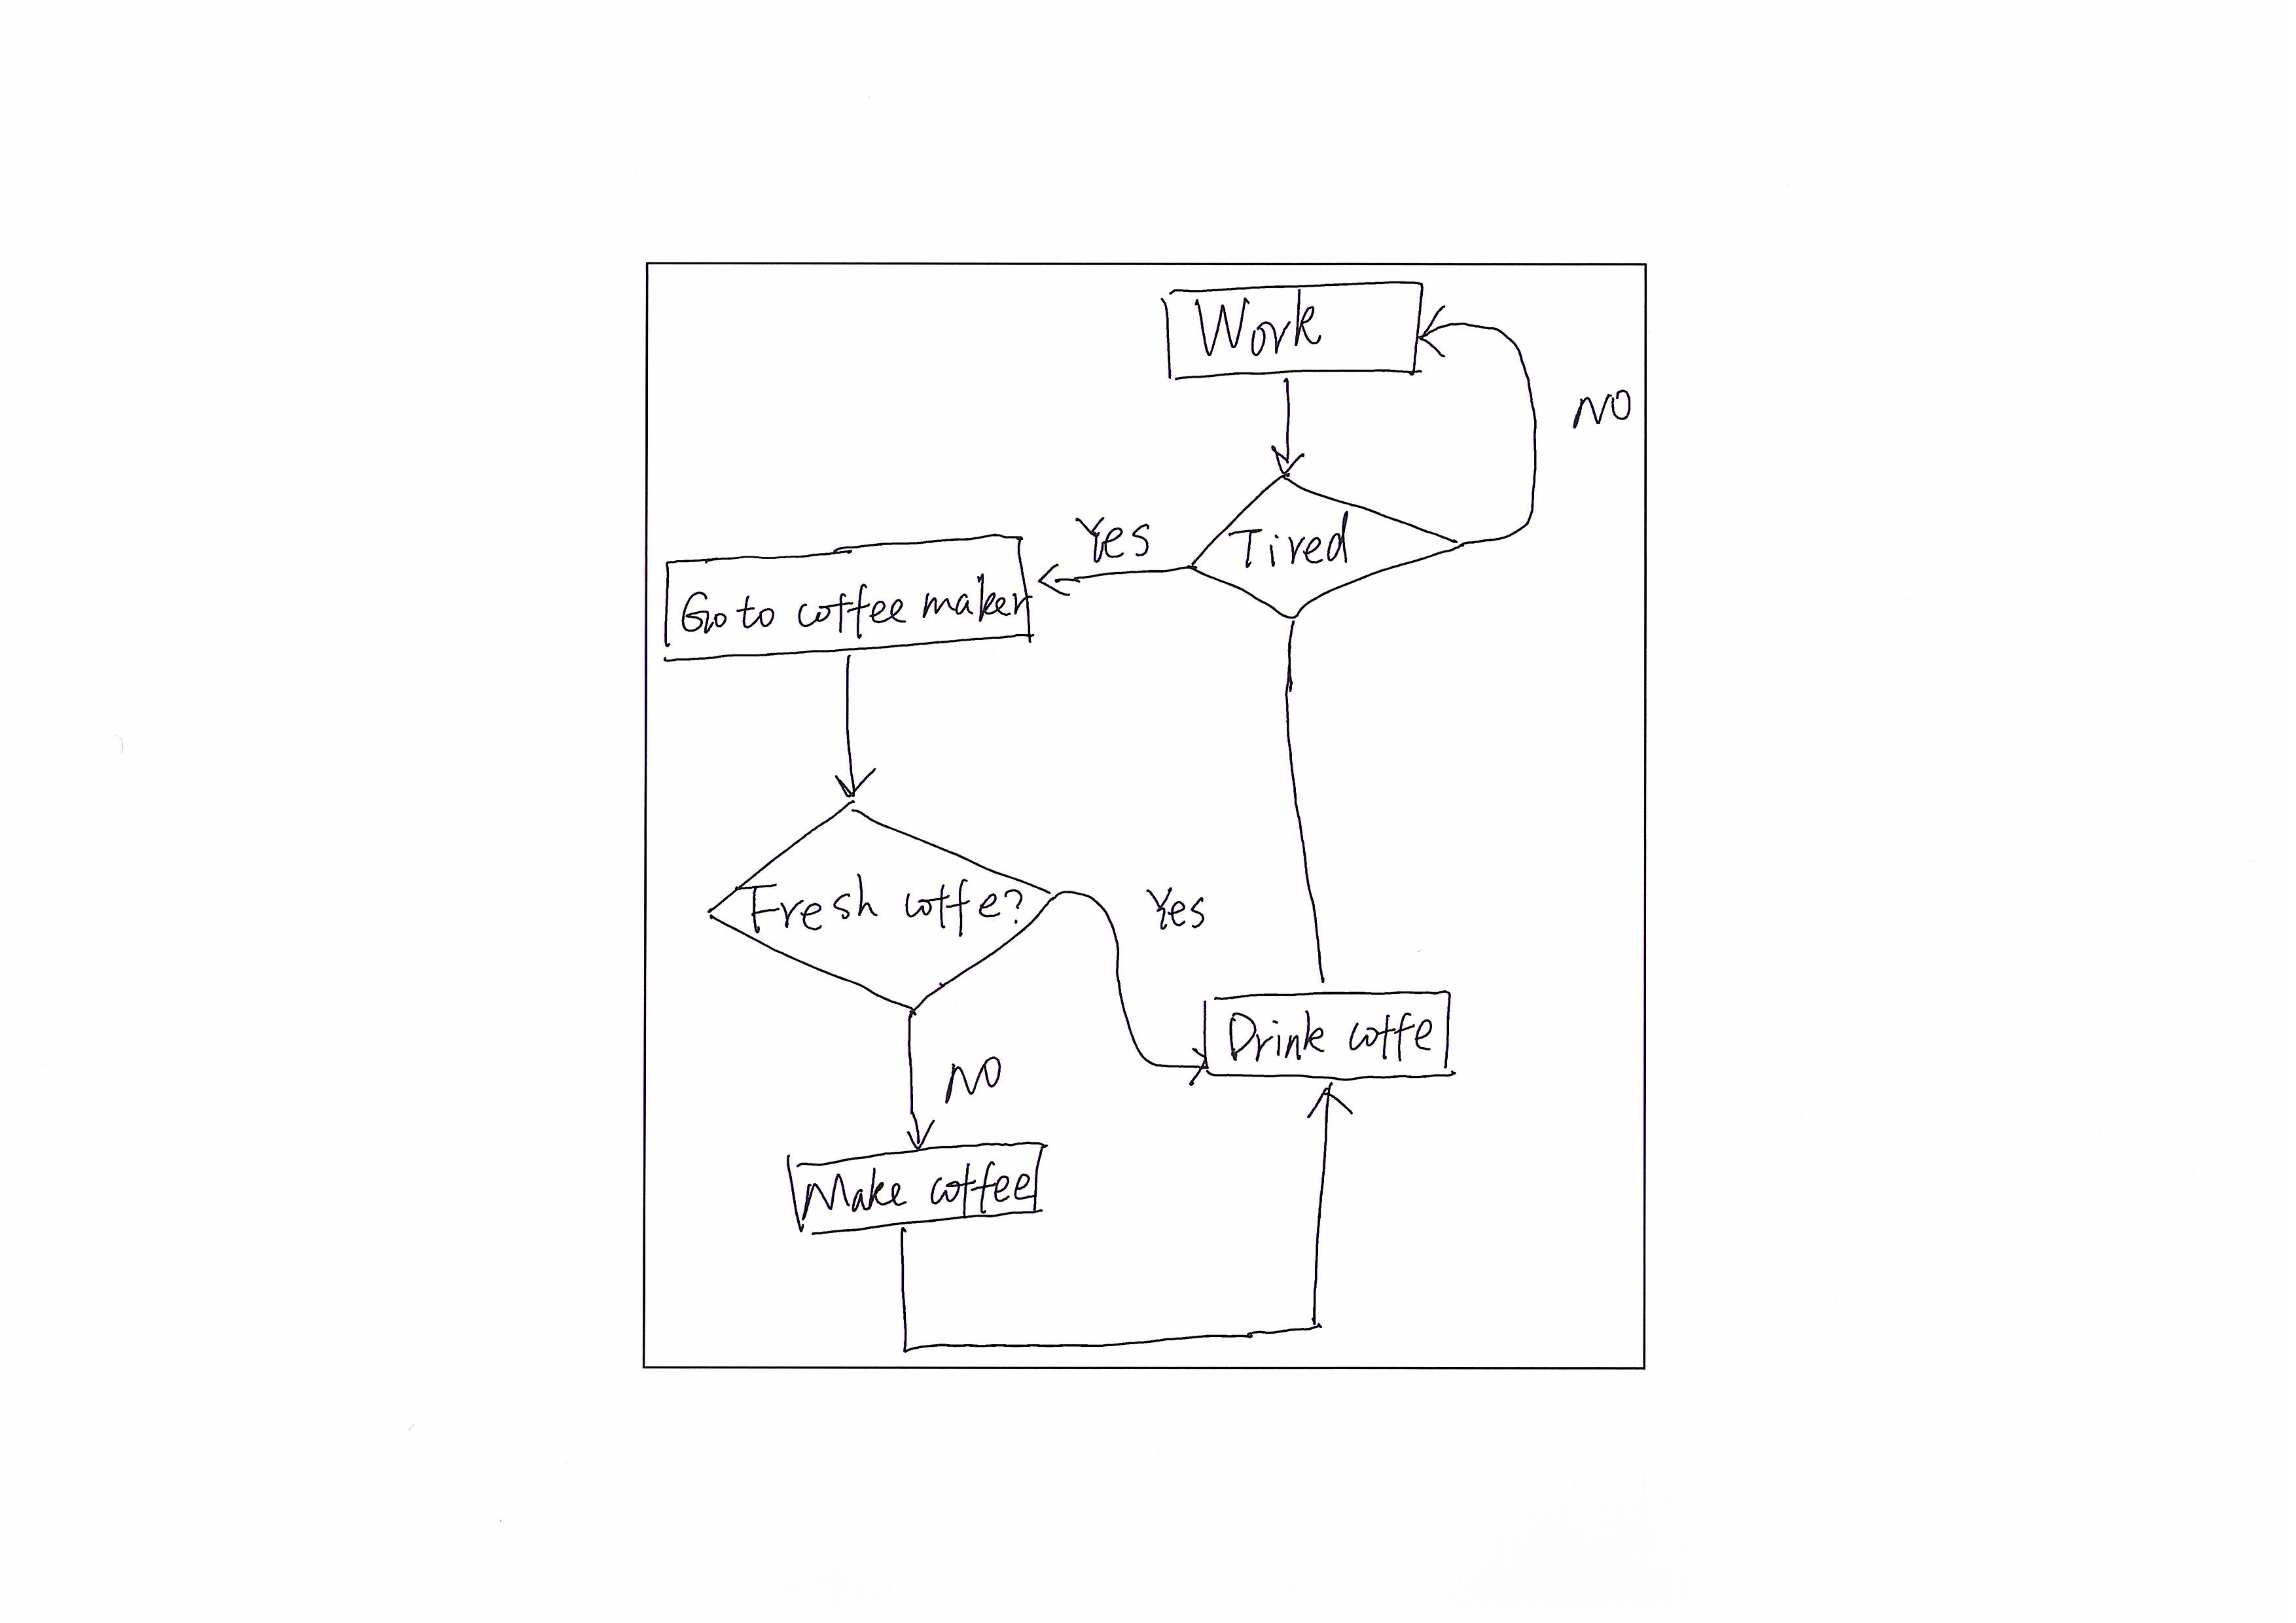 Work
NO
Tired
Yes
Go to coffee maker
Fresh coffe?
Yes
Drink coffe
NO
Make coffee